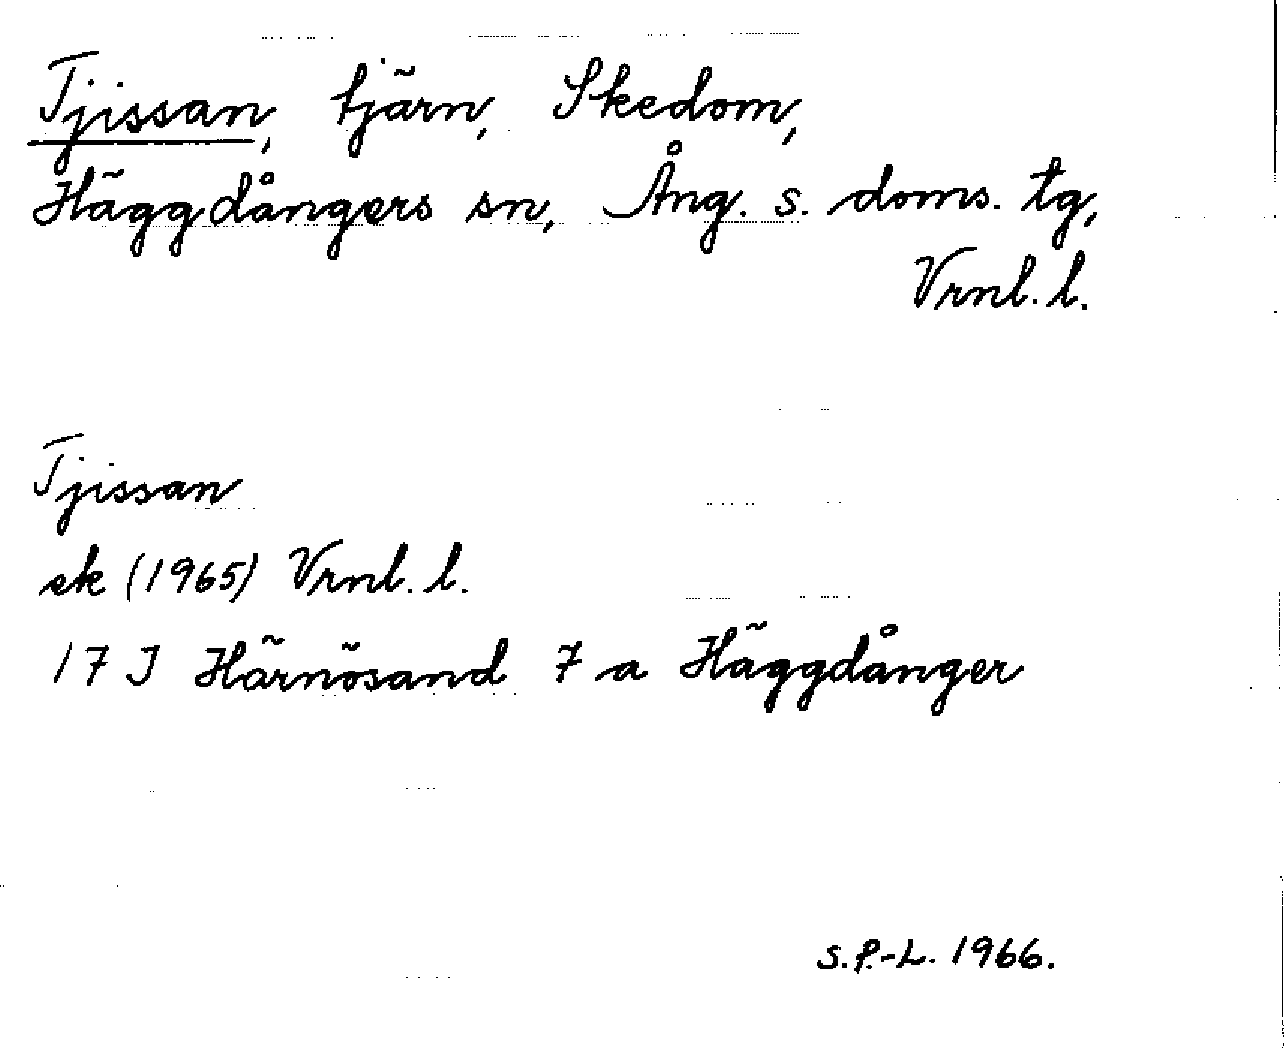 Tjissan, tjärn, Skedom,
Häggdångers sn, Ång. s. doms. tg,
Vrnl. l.
Tjissan
ek (1965) Vrnl. l.
17 J Härnösand 7 a Häggdånger
S.P.-L. 1966.